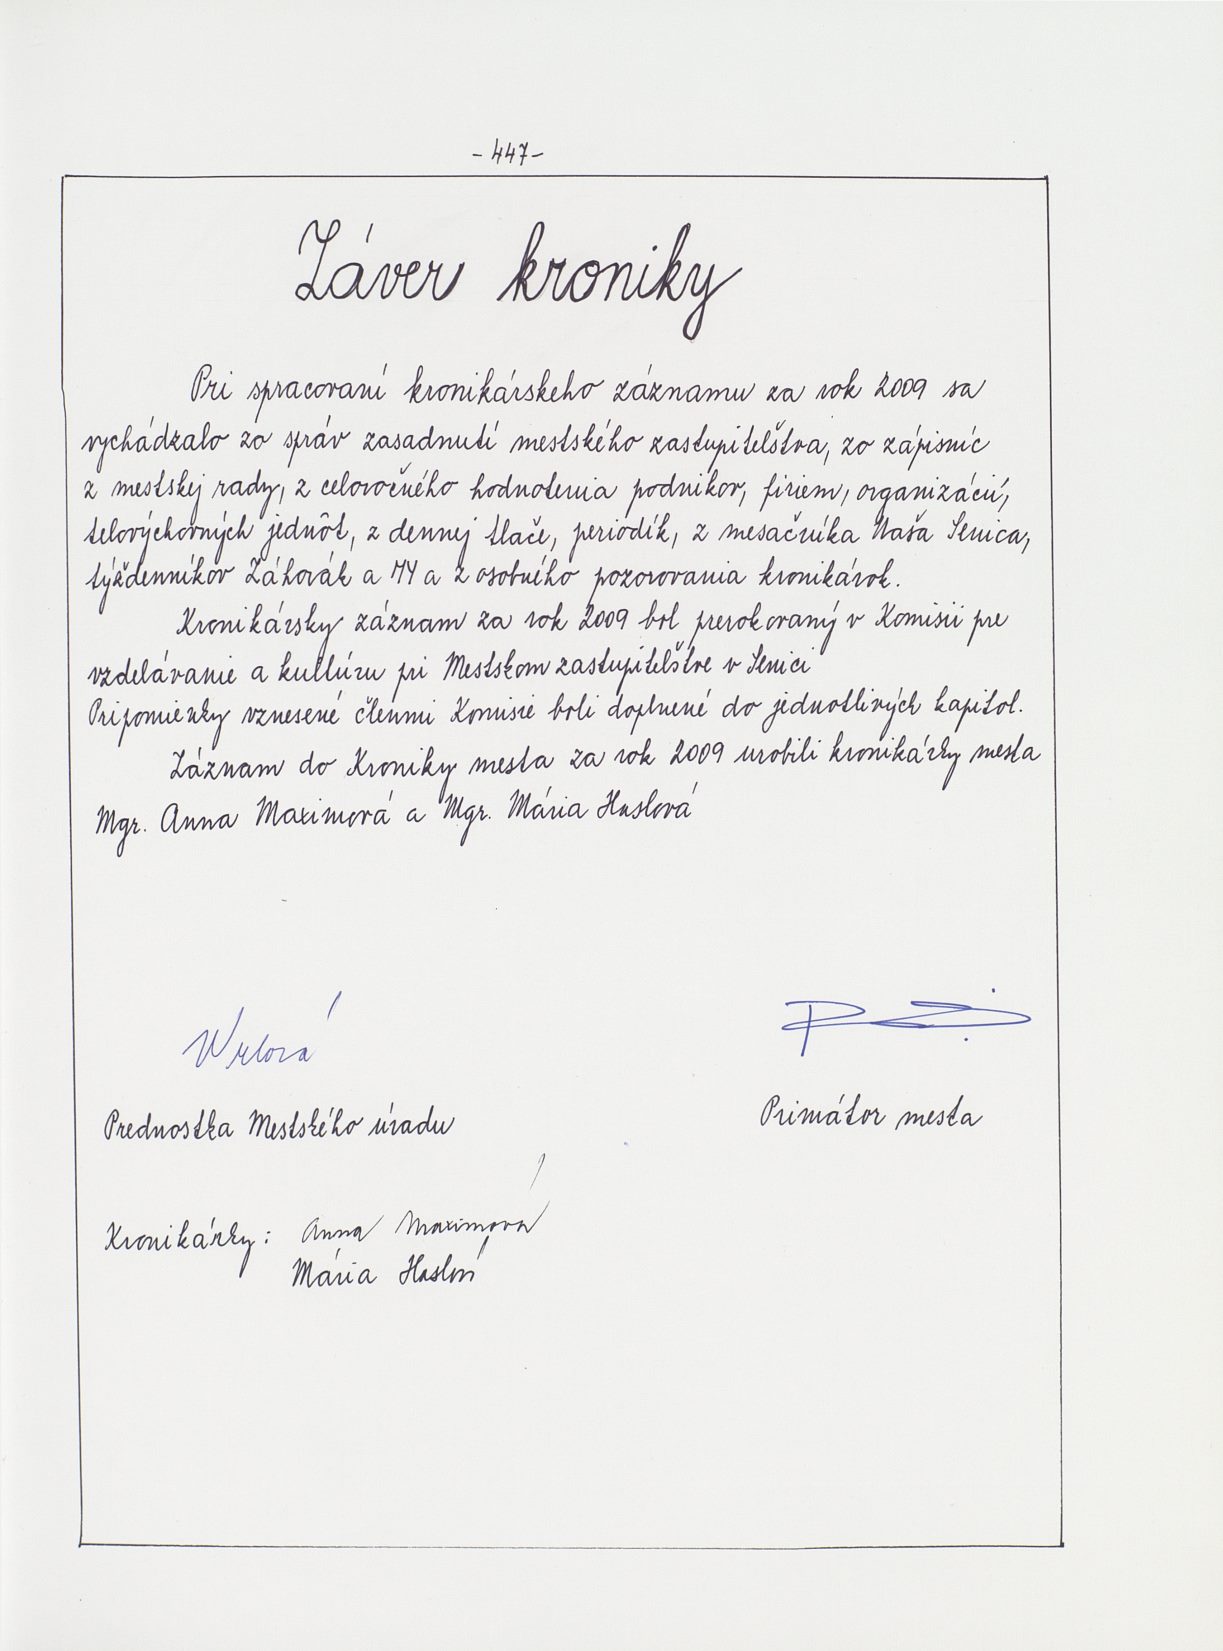 - 447 -
Záver kroniky
Pri spracovaní kronikárskeho záznamu za rok 2009 sa
vychádzalo zo správ zasadnutí mestského zastupiteľstva, zo zápisníc
z mestskej rady, z celoročného hodnotenia podnikov, firiem, organizácií,
telovýchovných jednôt, z dennej tlače, periodík, z mesačníka Naša Senica,
týždenníkov Záhorák a MY a z osobného pozorovania kronikárok.
Kronikársky záznam za rok 2009 bol prerokovaný v Komisii pre
vzdelávanie a kultúru pri Mestskom zastupiteľstve v Senici
Pripomienky vznesené členmi Komisie boli doplnené do jednotlivých kapitol.
Záznam do Kroniky mesta za rok 2009 urobili kronikárky mesta
Mgr. Anna Maximová a Mgr. Mária Haslová
Prednostka Mestského úradu
Primátor mesta
Kronikárky: Anna Maximová
Mária Haslová